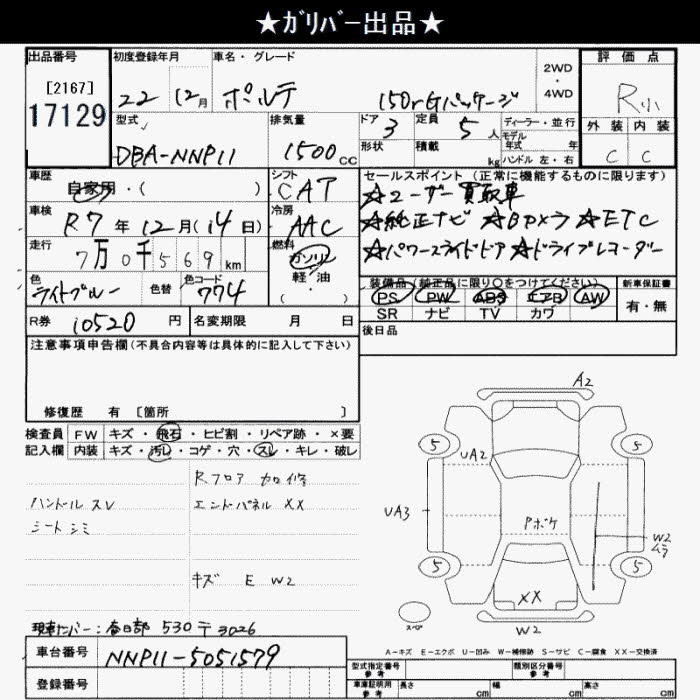 ★ガリバー出品★
出品番号
[2167]
17129
初度登録年月
22 12月
車名・グレード
ポルテ 150r Gパッケージ
2WD
・
4WD
評価点
R小
外装 内装
C C
型式
DBA-NNP11
排気量
1500cc
ドア 3
形状
定員 5人
積載 kg
ディーラー・並行
モデル年式 年式
ハンドル 左・右
車歴
自家用・( )
シフト
CAT
車検
R7年12月(14日)
冷房
AAC
走行
7万0千569km
燃料
ガソリン
軽・油
( )
色
ライトブルー
色替
色コード
774
セールスポイント (正常に機能するものに限ります)
☆ユーザー買取車
☆純正ナビ ☆Bカメラ ☆ETC
☆パワースライドドア ☆ドライブレコーダー
装備品(純正品に限り○をつけてください) 新車保証書
PS PW ABS エアB AW
SR ナビ TV カワ
有・無
R券 10520円
名変期限 月 日
後日品
注意事項申告欄(不具合内容等は具体的に記入して下さい)
修復歴 有 [箇所 ]
検査員記入欄
FW キズ・飛石・ヒビ割・リペア跡・×要
内装 キズ・汚レ・コゲ・穴・スレ・キレ・破レ
Rフロア カロ修
ハンドル スレ
エンドパネル XX
シート シミ
キズ E W2
A2
5 5
UA2
UA3
Pボケ
W2
ムラ
5 5
XX
スペア
W2
現車ナンバー:春日部 530 テ 3026
A-キズ E-エクボ U-凹み W-補修跡 S-サビ C-腐食 XX-交換済
車台番号
NNP11-5051579
登録番号
型式指定番号 参考
類別区分番号 参考
車庫証明用 参考
長さ cm 幅 cm 高さ cm